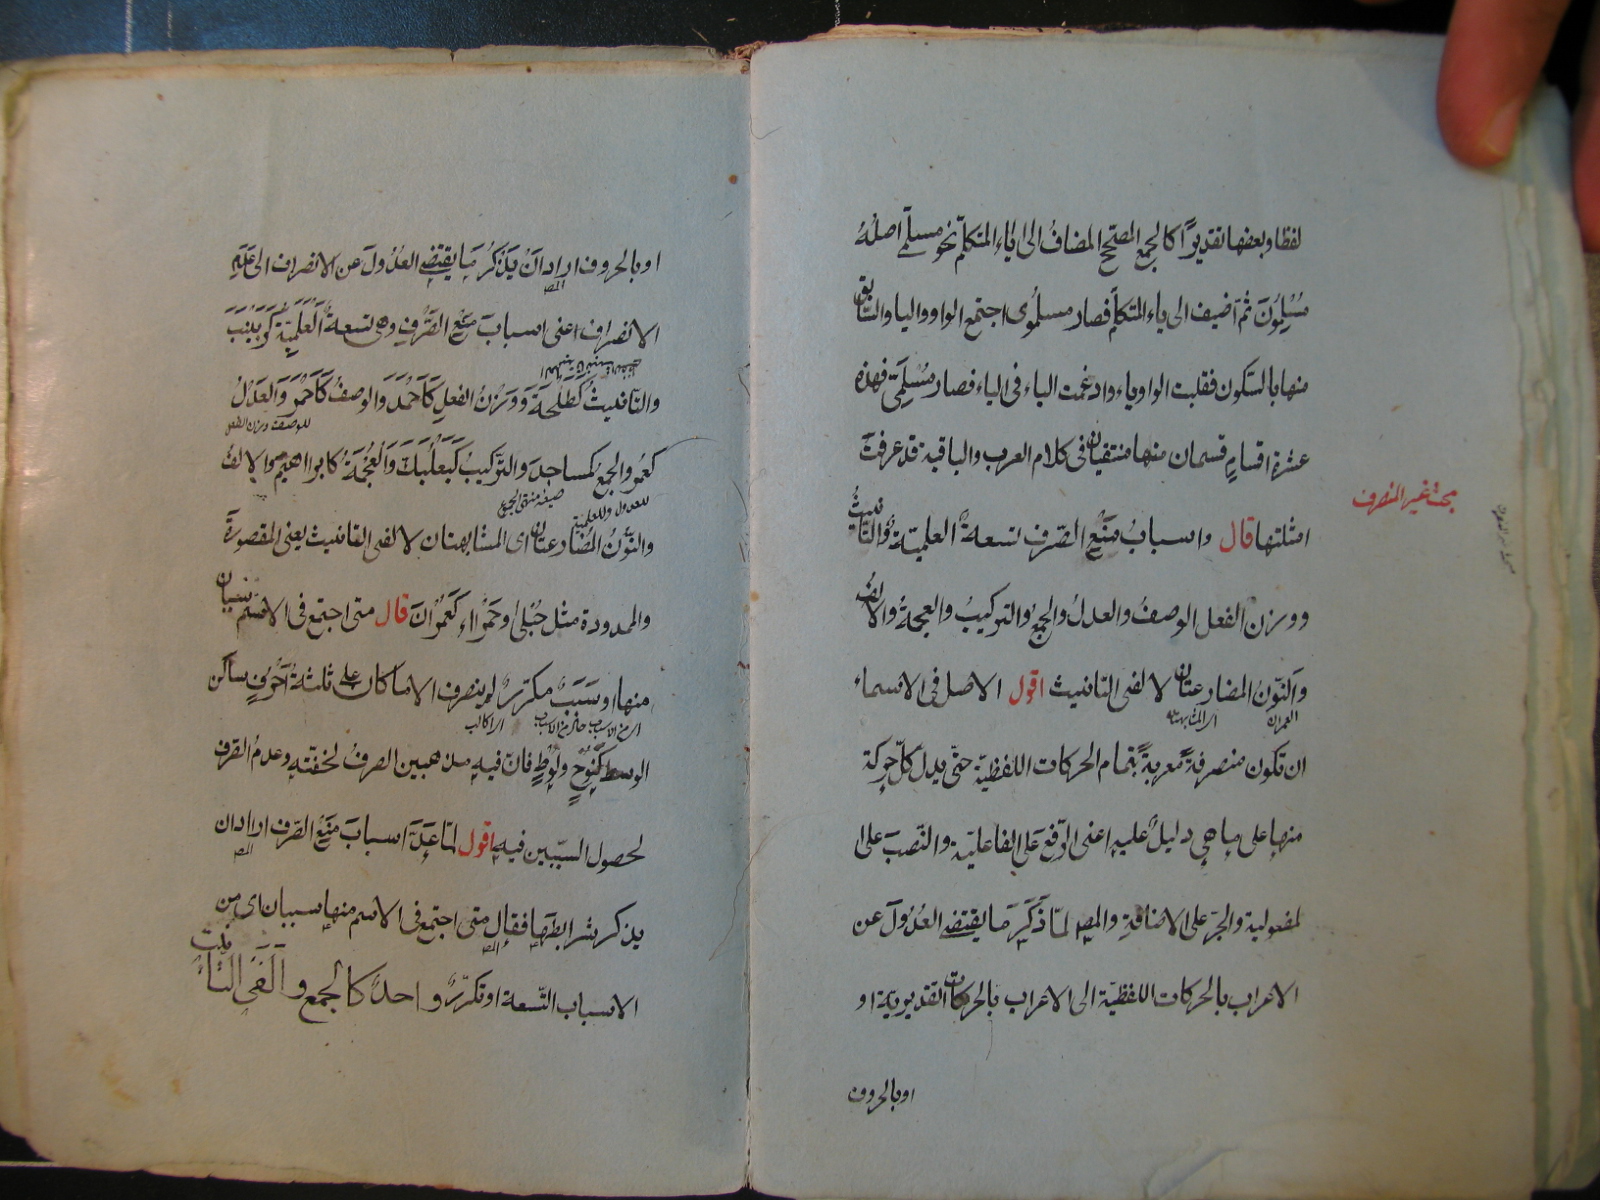 لفظا وبعضها تقديرًا كالجمع المصحح المضاف الى ياء المتكلّم نحو مسلمىّ اصله
مُسْلِمُونَ ثمّ اضيف الى ياء المتكلّم فصار مسلموى اجتمع الواو والياء والسّابق
منها بالسّكون فقلبت الواو ياء وادغمت الياء فى الياء فصار مُسْلِمىّ فهذه
عشرة اقسام قسمان منها منتفيان فى كلام العرب والباقية قد عرفت
مبحث غير المنصرف
امثلتها قال واسبابُ مَنْعِ الصّرف تسعة العلميّة والتّأنيث
ووزن الفعل الوصفُ والعدلُ والجمعُ والتركيبُ والعجمةُ والالفُ
والنّونُ المضارعتان لالفى التّانيث اقول الاصل فى الاسماء
ان تكون منصرفةً معربةً بتمام الحركات اللفظيّة حتّى يدل كلّ حركة
منها على ما هى دليلٌ عليه اعنى الرّفع على الفاعليّة والنّصبَ على ا
لمفعولية والجرّ على الاضافةِ والمص لمّا ذَكَرَ مَا يقتضى العُدُولَ عن
الاعراب بالحركات اللفظيّة الى الاعراب بالحركات التقديريّة او
اوبالحروف
اوبالحروف اراد انْ يذكُرَ مَا يقتضى العدُولَ عن الانصراف الى عدم
الانصراف اعنى اسبابَ مَنْعِ الصَّرفِ وهى تسعةٌ الْعَلَمِيَّةُ كَزَيْنَبَ
والتّانيثُ كَطَلْحَةَ وَوَزْنُ الفعلِ كَأَحْمَدَ وَالوصفُ كَأَحْمَرَ وَالعَدْلُ
للوصف ووزن الفعل
كعُمَرَ والجمعُ كمساجدَ والتّركيبُ كَبَعْلَبَكَّ وَالْعُجْمَةُ كابراهيمَ والالفُ
للعدول وللعلمية
صيغة منتهى الجموع
والنّونُ المُضارعتان اى المشابهتان لالفى التانيث يعنى المقصورةَ
والممدودة مثل حُبْلى وحَمْراء كَعِمْرَانَ قال متى اجتمع فى الاسم سببان
منها او سَبَبٌ مكرّرٌ لم ينصرف الا ما كان على ثلثة أحْرُفٍ ساكن
الوسط كَنُوحٍ ولُوطٍ فانّ فيه مذهبين الصرفُ لخفّته وعدمُ الصّرف
لحصول السّببين فيه اقول لمّا عَدَّ اسبابَ مَنْعِ الصّرف اراد ان
يذكر شرايطَهَا فقال متى اجتمع فى الاسم منها سببان اى من
الاسباب التّسعة او تكرّرَ واحدٌ كالجمع والفَىِ التّأنيث